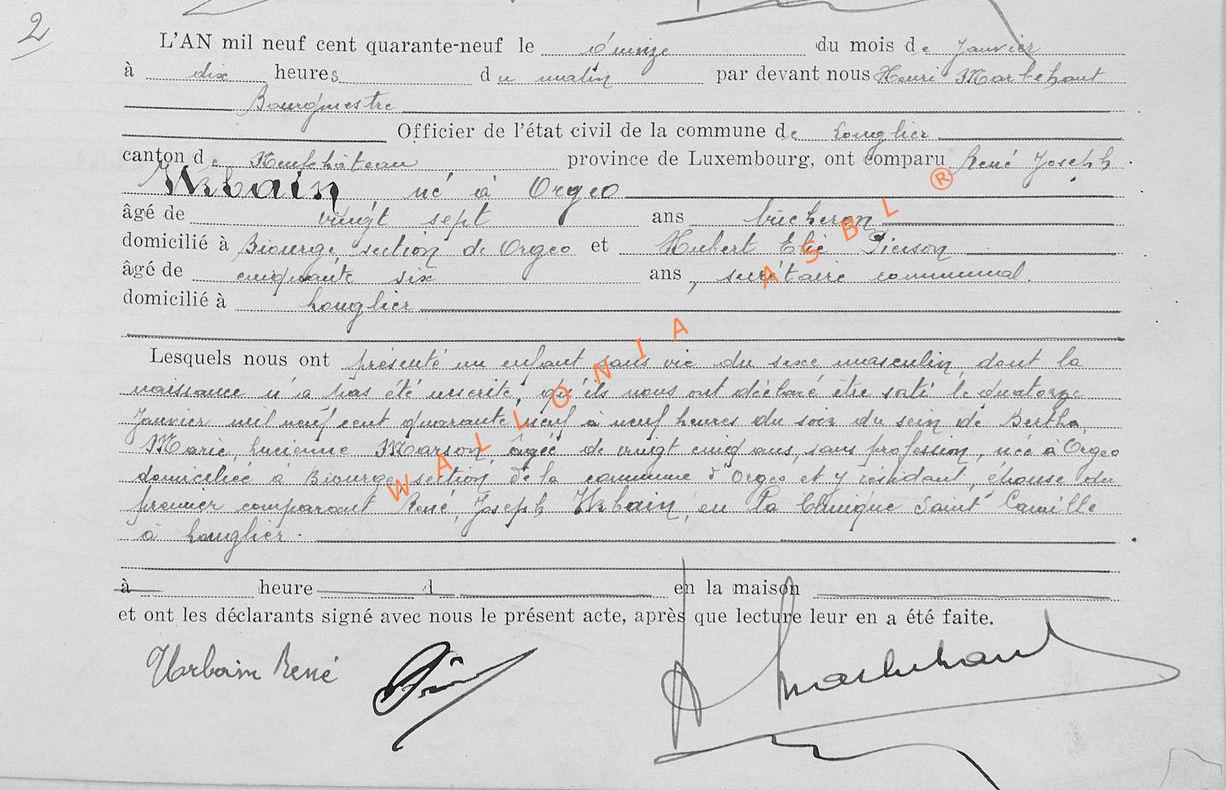 2
L'AN mil neuf cent quarante-neuf le quinze du mois de Janvier
à dix heures du matin par devant nous Henri Marbehant
Bourgmestre
Officier de l'état civil de la commune de Longlier
canton de Neufchâteau province de Luxembourg, ont comparu René Joseph
Urbain né à Orgeo
âgé de vingt sept ans bucheron
domicilié à Biourge section de Orgeo et Hubert Elie Pierson
âgé de cinquante six ans, secrétaire communal.
domicilié à Longlier
Lesquels nous ont présenté un enfant sans vie du sexe masculin, dont la
naissance n'a pas été inscrite, qu'ils nous ont déclaré être sorti le quatorze
Janvier mil neuf cent quarante neuf à neuf heures du soir du sein de Bertha,
Marie, Lucienne Marson âgée de vingt cinq ans, sans profession, née à Orgeo
domiciliée à Biourge section de la commune d'Orgeo et y résidant, épouse du
premier comparant René, Joseph Urbain, en la Clinique Saint Camille
à Longlier.
à heure d en la maison
et ont les déclarants signé avec nous le présent acte, après que lecture leur en a été faite.
Urbain René Marbehant
WALLONIA ASBL ®